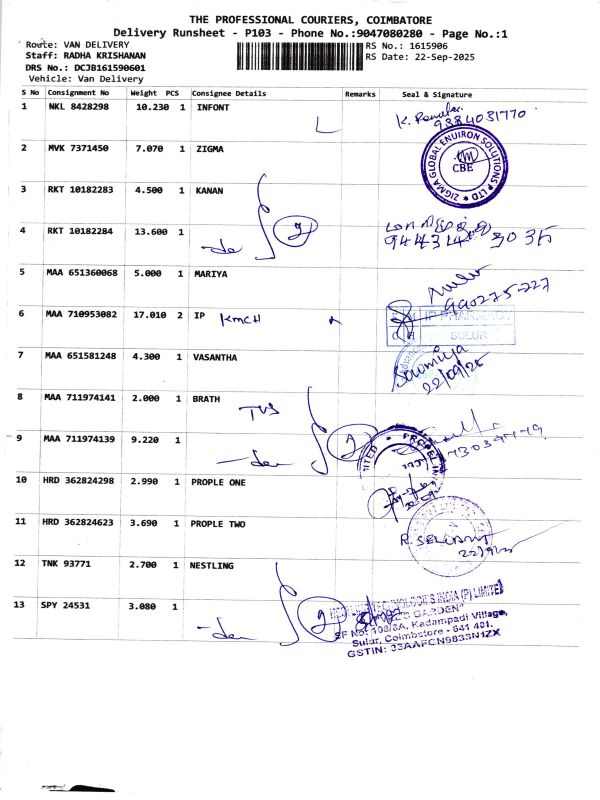 THE PROFESSIONAL COURIERS, COIMBATORE
Delivery Runsheet - P103 - Phone No.:9047080280 - Page No.:1
Route: VAN DELIVERY RS No.: 1615906
Staff: RADHA KRISHANAN RS Date: 22-Sep-2025
DRS No.: DCJB161590601
Vehicle: Van Delivery
S No Consignment No Weight PCS Consignee Details Remarks Seal & Signature
1 NKL 8428298 10.230 1 INFONT
9384031770
2 MVK 7371450 7.070 1 ZIGMA
ZIGMA GLOBAL ENVIRON SOLUTIONS P LTD
CBE
3 RKT 10182283 4.500 1 KANAN
4 RKT 10182284 13.600 1
2
5 MAA 651360068 5.000 1 MARIYA
6 MAA 710953082 17.010 2 IP KMCH
IP PHARMACY
SULUR
7 MAA 651581248 4.300 1 VASANTHA
Sowmiya
22/09/25
8 MAA 711974141 2.000 1 BRATH
TVS
9 MAA 711974139 9.220 1
2
10 HRD 362824298 2.990 1 PROPLE ONE
11 HRD 362824623 3.690 1 PROPLE TWO
22/9/25
12 TNK 93771 2.700 1 NESTLING
13 SPY 24531 3.080 1
2
TECHNOLOGIES INDIA (P) LIMITED
GARDEN"
SF No: 108/3A, Kadampadi Village,
Sulur, Coimbatore - 641 401.
GSTIN: 33AAFCN9833N1ZX